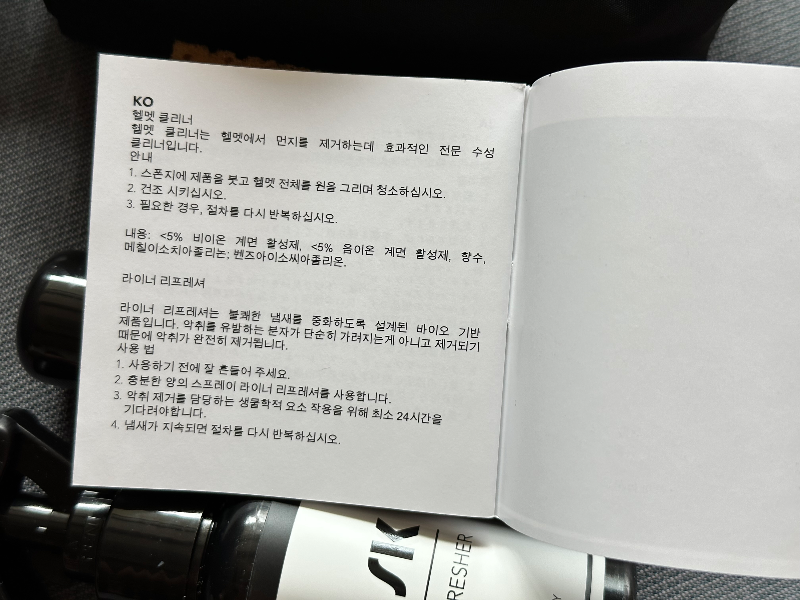 KO
헬멧 클리너
헬멧 클리너는 헬멧에서 먼지를 제거하는데 효과적인 전문 수성
클리너입니다.
안내
1. 스폰지에 제품을 붓고 헬멧 전체를 원을 그리며 청소하십시오.
2. 건조 시키십시오.
3. 필요한 경우, 절차를 다시 반복하십시오.
내용: <5% 비이온 계면 활성제, <5% 음이온 계면 활성제, 향수,
메칠이소치아졸리논; 벤즈아이소씨아졸리온.
라이너 리프레셔
라이너 리프레셔는 불쾌한 냄새를 중화하도록 설계된 바이오 기반
제품입니다. 악취를 유발하는 분자가 단순히 가려지는게 아니고 제거되기
때문에 악취가 완전히 제거됩니다.
사용 법
1. 사용하기 전에 잘 흔들어 주세요.
2. 충분한 양의 스프레이 라이너 리프레셔를 사용합니다.
3. 악취 제거를 담당하는 생물학적 요소 작용을 위해 최소 24시간을
기다려야합니다.
4. 냄새가 지속되면 절차를 다시 반복하십시오.
SK
RESHER